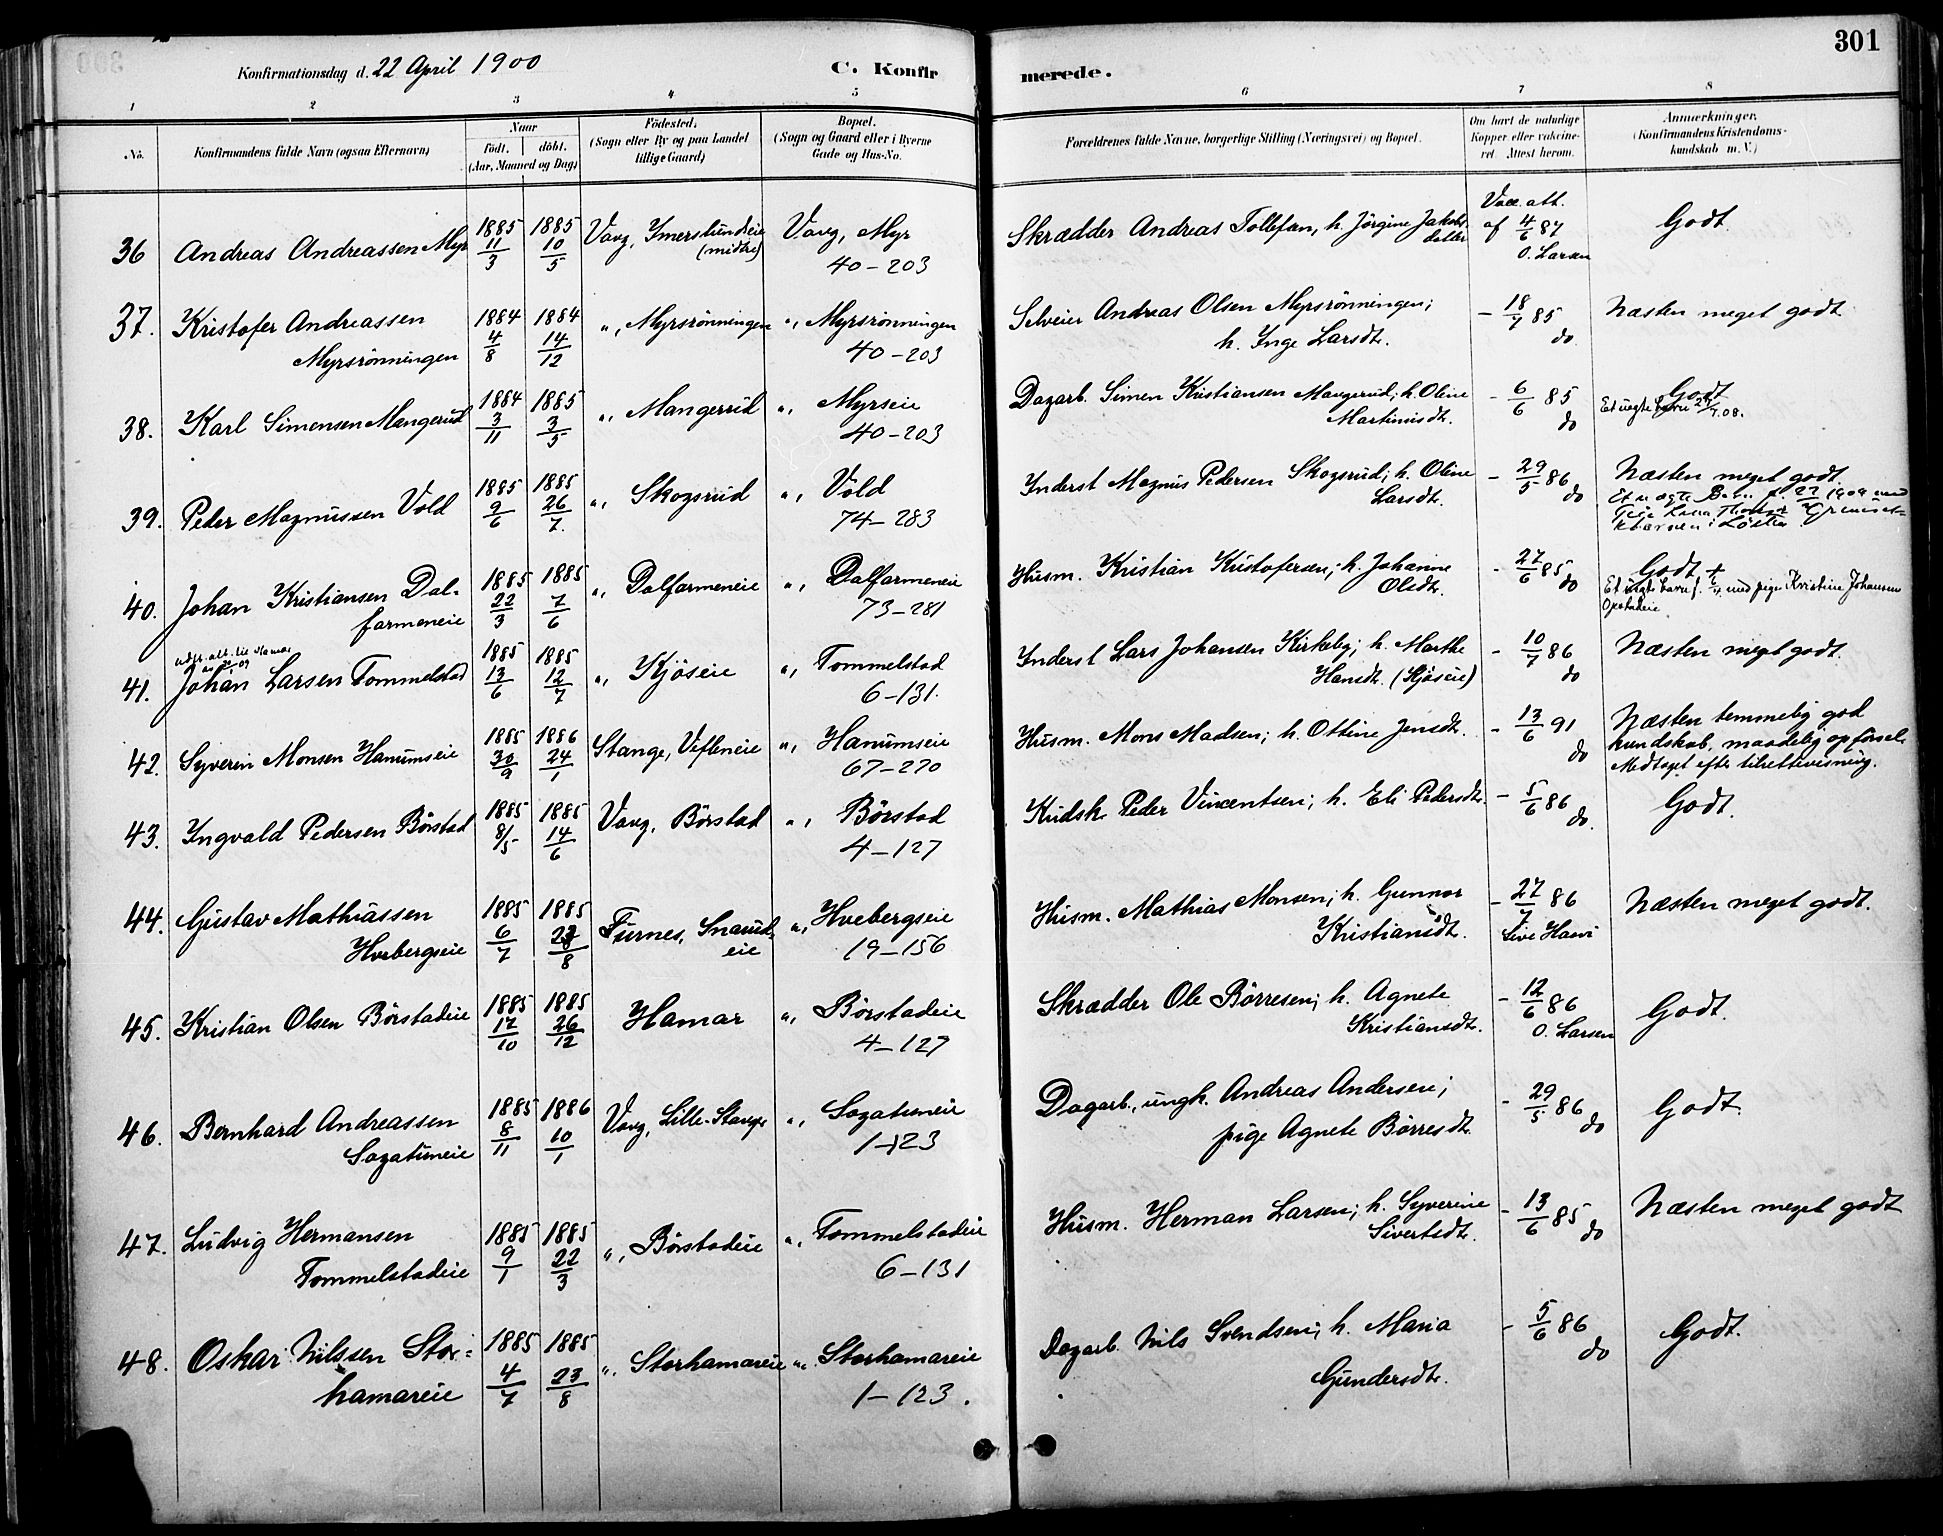 301
Konfirmationsdag d. 22 April 1900
C. Konfirmerede.
1 2 3 4 5 6 7 8
No.
Konfirmandens fulde Navn (ogsaa Efternavn)
Naar
født. døbt.
(Aar, Maaned og Dag)
Fødested.
(Sogn eller By og paa Landet
tillige Gaard)
Bopæl.
(Sogn og Gaard eller i Byerne
Gade og Hus-No.
Forældrenes fulde Navne, borgerlige Stilling (Næringsvei) og Bopæl.
Om havt de naturlige
Kopper eller vakcine-
ret. Attest herom.
Anmerkninger.
(Konfirmandens Kristendoms-
kundskab m. V.)
36 Andreas Andreassen Myr 1885 11/3 1885 10/5 Vang, Imerslundeie (midtre) Vang, Myr 40-203
Skrædder Andreas Tollefsen, h. Jørgine Jakobsdatter Vacc. att. af 4/6 87 O. Larsen Godt
37. Kristofer Andreassen Myrsrönningen 1884 4/8 1884 14/12 ", Myrsrönningen ", Myrsrönningen 40-203
Selveier Andreas Olsen Myrsrönningen; h. Inge Larsdt. - 18/7 85 do. Næsten meget godt
38. Karl Simensen Mangerud 1884 3/11 1885 3/5 ", Mangerud ", Myrseie 40-203
Dagarb. Simen Kristiansen Mangerud; h. Oline Martinusdt. - 6/6 85 do Godt
Et uegte barn
39. Peder Magnussen Vold 1885 9/6 1885 26/7 ", Skogsrud ", Vold 74-283
Inderst Magnus Pedersen Skogsrud; h. Oline Larsdt. - 29/5 86 do Næsten meget godt.
40. Johan Kristiansen Dalfarmeneie 1885 22/3 1885 7/6 ", Dalfarmeneie ", Dalfarmeneie 73-281
Husm. Kristian Kristofersen; h. Johanne Olsdt. - 27/6 85 do Godt +
Et uegte barn f. med pige Kristine Johansen
41. Johan Larsen Tommelstad 1885 13/6 1885 12/7 ", Kjöseie ", Tommelstad 6-131.
Inderst Lars Johansen Kirkeby; h. Marthe Hansdt. (Kjöseie) - 10/7 86 do Næsten meget godt.
42. Syverin Monsen Hanumseie 1885 30/9 1886 24/1 Stange, Vefleneie ", Hanumseie 67-270
Husm. Mons Madsen; h. Ottine Jensdt. - 13/6 91 do Næsten temmelig god
kundskab, maadelig opførsel.
Medtaget efter tilrettevisning.
43. Ingvald Pedersen Börstad 1885 8/5 1885 14/6 Vang, Börstad ", Börstad 4-127
Kudsk Peder Vincentsen; h. Eli Pedersdt. - 5/6 86 do. Godt.
44. Gustav Mathiassen Hvebergseie 1885 6/7 1885 23/8 Furnes, Snarudeie ", Hvebergseie 19-156
Husm. Mathias Monsen; h. Gunnor Kristiansdt. - 27/7 86 Næsten meget godt.
45. Kristian Olsen Börstadeie 1885 17/10 1885 26/12 Hamar ", Börstadeie 4-127
Skrædder Ole Börresen; h. Agnete Kristiansdt. - 12/6 86 O. Larsen Godt.
46. Bernhard Andreassen Sagatuneie 1885 8/11 1886 10/1 Vang, Lille-Stange ", Sagatuneie 1-123
Dagarb., ungk. Andreas Andersen; pige Agnete Börresdt. - 29/5 86 do Godt.
47. Ludvig Hermansen Tommelstadeie 1885 9/1 1885 22/3 ", Börstadeie ", Tommelstadeie 6-131
Husm. Herman Larsen; h. Syverine Sivertsdt. - 13/6 85 do Næsten meget godt
48. Oskar Nilssen Storhamareie 1885 4/7 1885 23/8 ", Storhamareie ", Storhamareie 1-123.
Dagarb. Nils Svendsen; h. Maria Gundersdt. - 5/6 86 do Godt.